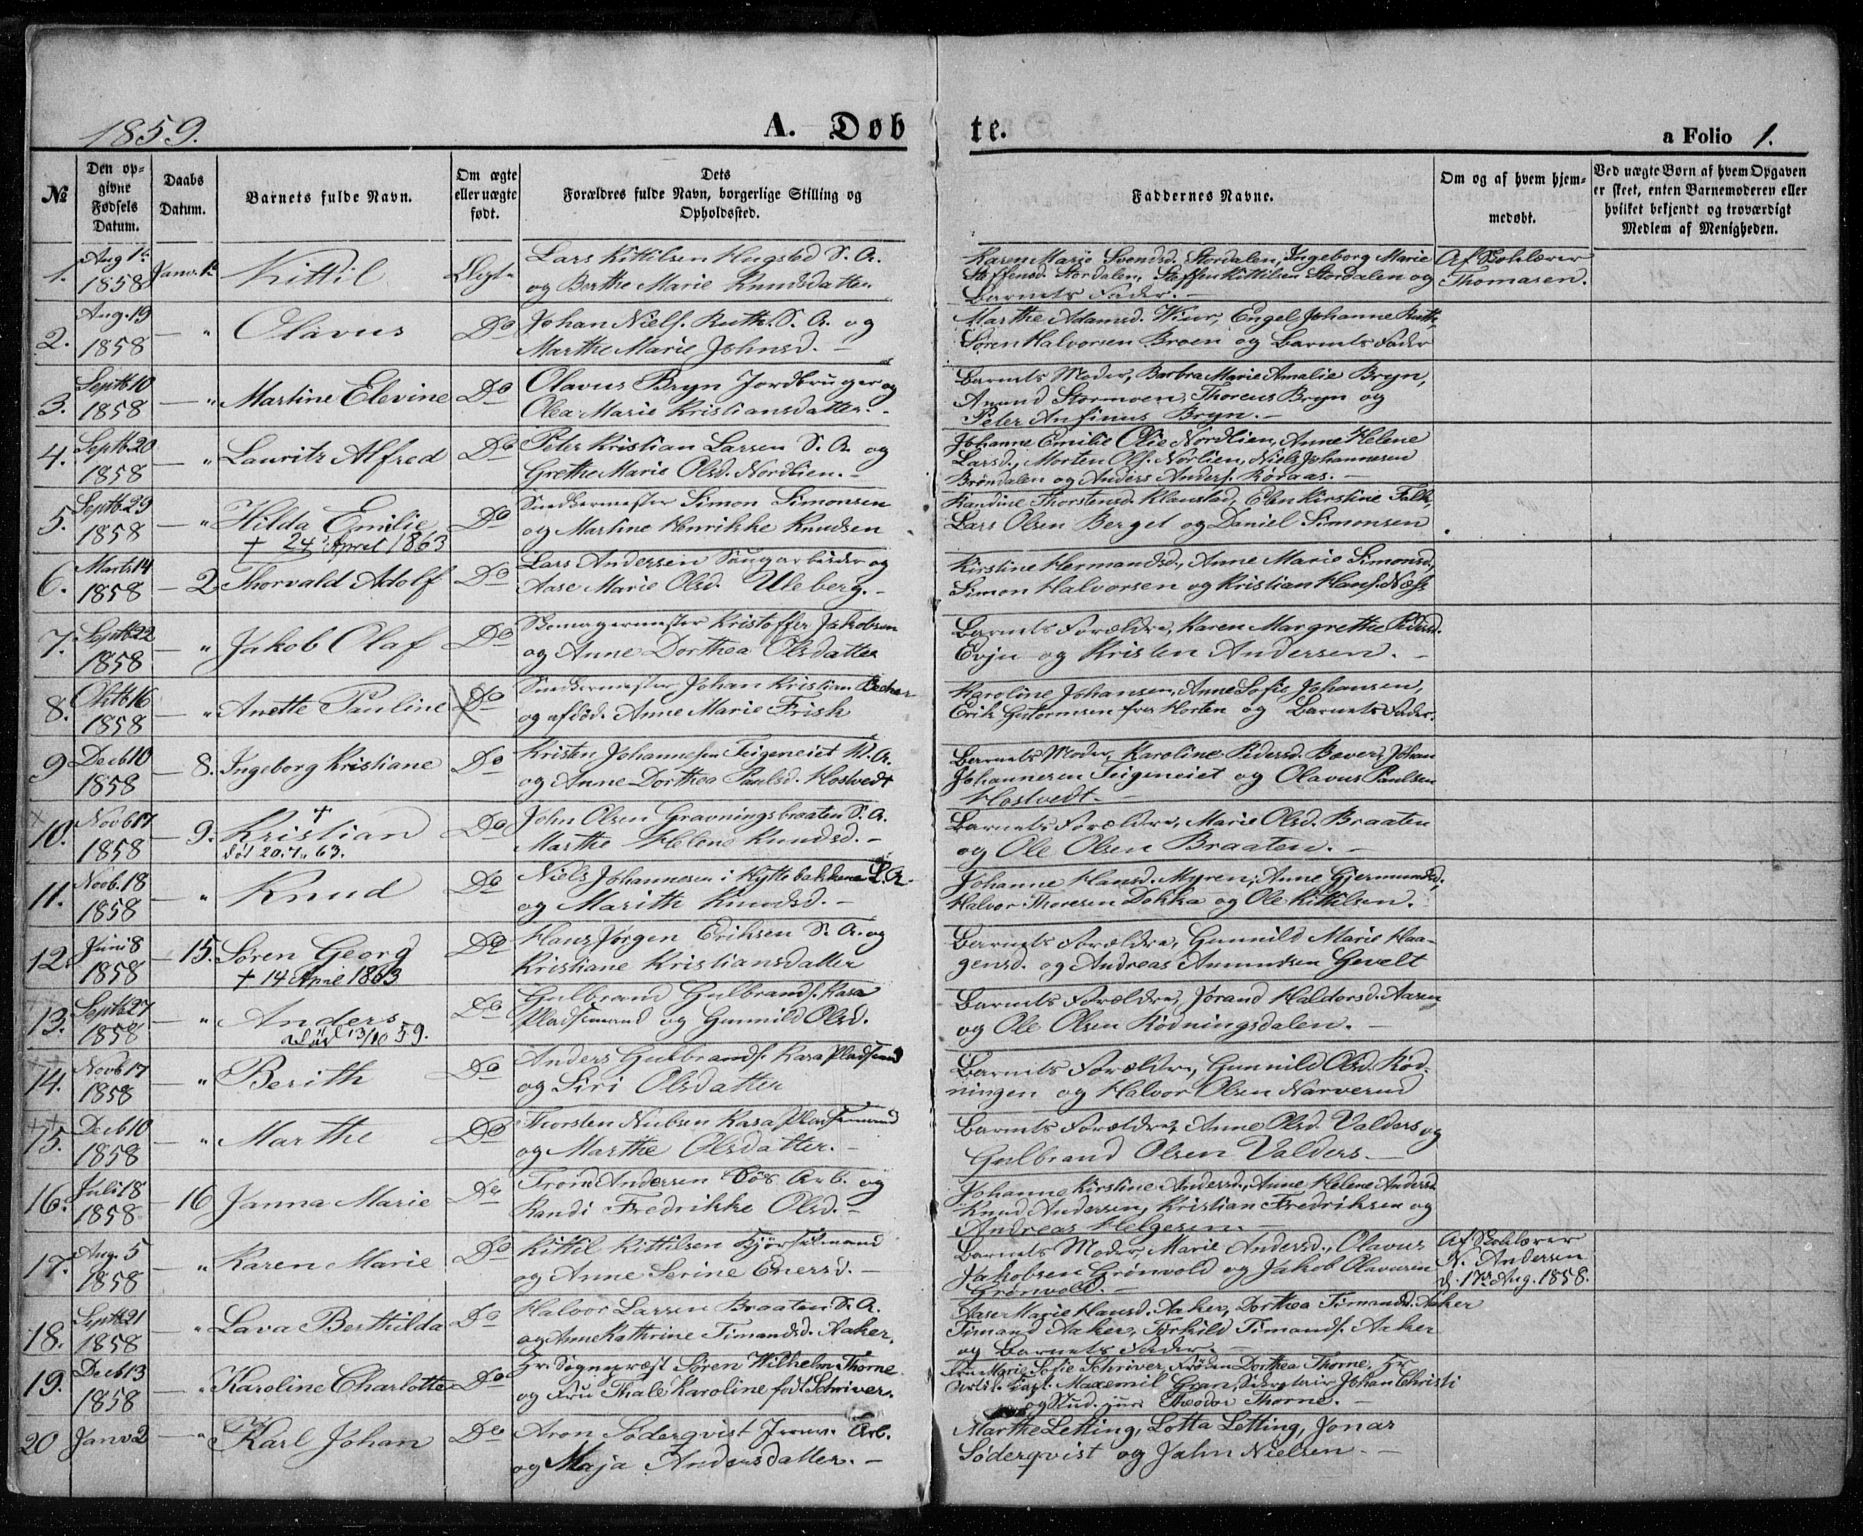 1859.
A. Døb
te.
a Folio 1.
№
Den op-
givne
Fødsels
Datum.
Daabs
Datum.
Barnets fulde Navn.
Om ægte
eller uægte
født.
Dets
Forældres fulde Navn, borgerlige Stilling og
Opholdssted.
Faddernes Navne.
Om og af hvem hjem-
medøbt.
Ved uægte Børn af hvem Opgaven
er skeet, enten Barnemoderen eller
hvilket bekjendt og troværdigt
Medlem af Menigheden.
1. Aug 1ste 1858 Janr. 1ste Kittil
Lars Kittilsen Hugsted S. A.
og Berthe Marie Knudsdatter
Karen Marie Svendsd. Stordalen, Ingeborg Marie
Steffensd. Stordalen, Steffen Kittilsen Stordalen og
Barnets Fader. —
Af Skolelærer
Thomasen.
2. Aug. 19 1858 — " Olavus Do
Johan Niels. Ruth. S. A. og
Marthe Marie Johnsd. —
Marthe Adamsd. Wiur, Engel Johanne Ruth,
Søren Halvorsen Broen og Barnets Fader
3. Septb 10 1858 — " Martine Elevine Do
Olavus Bryn Jordbruger og
Olea Marie Kristiansdatter. -
Barnets Moder, Barbra Marie Amalie Bryn,
Anund Stormoen, Thoreus Bryn og
Peter Anfinus Bryn. —
4. Septb. 20 1858 — " Lauritz Alfred Do
Peter Kristian Larsen S. A. og
Grethe Marie Olsd. Nordlien. —
Johanne Emilie Olie Nordlien, Anne Helene
Larsd., Morten Ols. Norlien, Niels Johannesen
Brøndalen og Anders Anders. Røraas. —
5. Septb. 29 1858 — " Hilda Emilie Do
+ 24 April 1863
Snedkermester Simon Simonsen
og Martine Henrikke Knudsen
Randine Thorstensd. Klaustad, Elen Kirstine Falk,
Lars Olsen Berget og Daniel Simonsen
6. Marts 14 1858 — 2 Thorvald Adolf Do
Lars Andersen Saugarbeider og
Aase Marie Olsd. Uleberg. —
Kirstine Hermandsd., Anne Marie Simonsd.,
Simon Halvorsen og Kristian Hans. Næs.
7. Septb 22 1858 — " Jakob Olaf Do
Skomagermester Kristoffer Jakobsen
og Anne Dorthea Olsdatter
Barnets Forældre, Karen Margrethe Pedersd.
Evju og Kristen Andersen. —
8. Oktb 16 1858 — " Anette Pauline Do
Snedkermester Johan Kristian Becher
og afdød. Anne Marie Frisk
Karoline Johansen, Anne Sofie Johansen,
Erik Guttormsen fra Horten og Barnets Fader.
9 Decb 10 1858 — 8. Ingeborg Kristiane Do
Kristen Johannesen Teigeneiet
og Anne Dorthea Paulsd. Hostvedt
Barnets Moder, Karoline Pedersd. Bæver, Johan
Johannesen Teigeneiet og Olavus Paulsen
Hostvedt. —
10. Novb 17 1858 — 9. Kristian + Do
død 20.7. 63.
John Olsen Gravningsbraaten S. A.
Marthe Helene Knudsd. —
Barnets Forældre, Marie Olsd. Braaten
og Ole Olsen Braaten. —
11. Novb. 18 1858 " Knud Do
Niels Johannesen i Hyttebakkene S. A.
og Marith Knudsd. —
Johanne Hansd. Myren, Anne Gjermundsd.,
Halvor Thoresen Dokka og Ole Kittilsen.
12. Juni 8 1858 — 15. Søren Georg Do
+ 14 April 1863
Hans Jørgen Eriksen S. A. og
Kristiane Kristiansdatter
Barnets Forældre, Gunnild Marie Haa-
gensd. og Andreas Amundsen Gevelt
13. Septb 27 1858 " Anders Do
død 13/10 59.
Gulbrand Gulbrands. Kasa
Pladsemand og Gunnild Olsd.
Barnets Forældre, Jørand Haldorsd. Aasen
og Ole Olsen Rødningsdalen. —
14. Novb 17 1858 — " Berith Do
Anders Gulbrands. Kasa Pladsemd
og Siri Olsdatter
Barnets Forældre, Gunnild Olsd. Rød-
ningen og Halvor Olsen Narverud
15. Decb 10 1858 — " Marthe Do
Thorsten Nubsen Kasa Pladsemand
og Marthe Olsdatter. —
Barnets Forældre, Anne Olsd. Valders og
Gulbrand Olsen Valders. —
16. Juli 18 1858 — 16 Janna Marie Do
Trond Andersen Arb. og
Randi Fredrikke Olsd. —
Johanne Kirstine Andersd., Anne Helene Andersd.
Knud Andersen, Kristian Fredriksen og
Andreas Helgesen. —
17. Aug. 5 1858 " Karen Marie Do
Kittil Kittilsen Kjørselsmand
og Anne Serine Enersd. —
Barnets Moder, Marie Andersd., Olavus
Jakobsen Grønvold og Jakob Olavusen
Grønvold. —
Af Skolelærer
N. Andersen
d. 17de Aug. 1858.
18. Septb 21 1858 " Lava Berthilda Do
Halvor Larsen Braaten S. A.
og Anne Kathrine Timandsd. Aaker.
Aase Marie Hansd. Aaker, Dorthea Timandsd. Aaker
Timand Aaker, Torkild Timands. Aaker
og Barnets Fader. —
19. Decb 13 1858 — " Karoline Charlotte Do
Hr. Sognepræst Søren Wilhelm Thorne
og Fru Thale Karoline født Schriver.
Fru Marie Sofie Schriver, Frøken Dorthea Thorne, Hr
Capt. Maxemil Gran, Johan Christi
og Stud. jur. Theodor Thorne. —
20 Janr 2 — " Karl Johan Do
Aron Söderqvist Arb.
og Maja Andersdatter. —
Marthe Letting, Lotta Letting, Jonas
Söderqvist og Jahn Nielsen. —